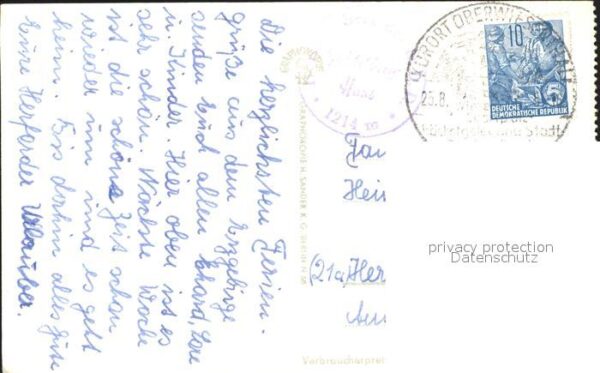 Die herzlichsten Ferien-
grüße aus dem Erzgebirge
senden Euch allen Erhard, Lore
u. Kinder. Hier oben ist es
sehr schön. Nächste Woche
ist die schöne Zeit schon
wieder um und es geht
heim. Bis dahin alles Gute
Eure Herforder Urlauber.
1214 m
KURORT OBERWIESENTHAL
25.8.
10
5
DEUTSCHE
DEMOKRATISCHE REPUBLIK
Stadt
H. SANDER K.G. BERLIN
Fam
Hein
(21a) Her
Verbraucherpre
privacy protection
Datenschutz